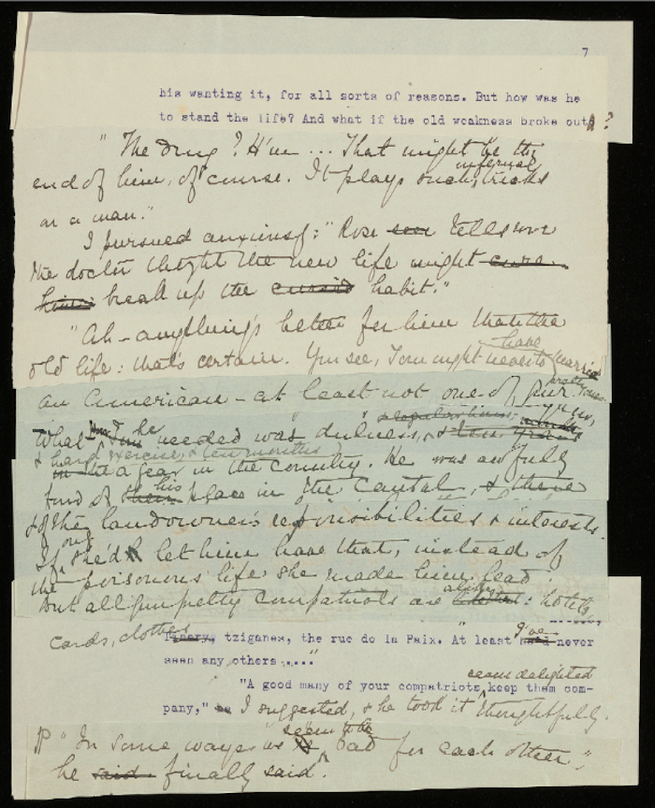 7
his wanting it, for all sorts of reasons. But how was he
to stand the life? And what if the old weakness broke out?
" The drug? H'm ... That might be the
end of him, of course. It plays such infernal tricks
on a man."
I pursued anxiously: " Rose tells me
the doctor thought the new life might
break up the habit."
"Ah — anything's better for him than the
old life: that's certain. You see, Tom might never have married
an American — at least not one of your pretty ones
What he needed was dulness, &
& hard exercise, & ten months
a year in the country. He was awfully
fond of his place in the Cantal, & there
of the landowner's responsibilities & interests.
If only she'd let him have that, instead of
the poisonous life she made him lead.
But all your pretty compatriots are alike: hotels,
cards, clothes
tziganes, the rue de la Paix. At least I've never
seen any others ...."
"A good many of your compatriots seem delighted keep them com-
pany," I suggested, & he took it thoughtfully.
"In some ways we seem to be bad for each other",
he finally said.